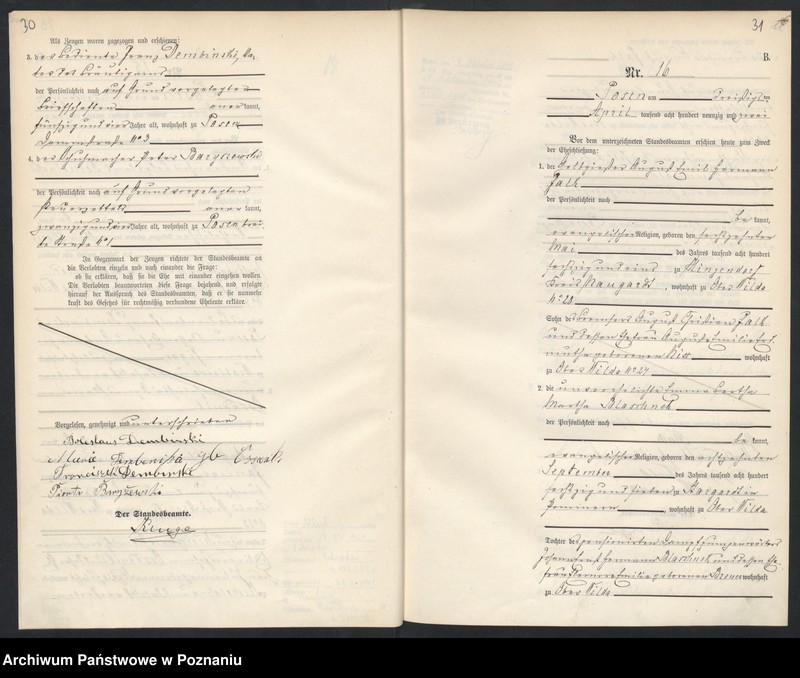 30
Als Zeugen waren zugezogen und erschienen:
3. der Bediente Franz Dembinski, Va-
ter des Bräutigams
der Persönlichkeit nach auf Grund vorgelegter
Briefschaften anerkannt,
fünfzig und vier Jahre alt, wohnhaft zu Posen
Dammstraße No 3
4. der Schuhmacher Peter
der Persönlichkeit nach auf Grund vorgelegten
Steuerzettels anerkannt,
zwanzig und vier Jahre alt, wohnhaft zu Posen Brei-
te Straße No 1
In Gegenwart der Zeugen richtete der Standesbeamte an
die Verlobten einzeln und nach einander die Frage:
ob sie erklären, daß sie die Ehe mit einander eingehen wollen.
Die Verlobten beantworteten diese Frage bejahend und erfolgte
hierauf der Ausspruch des Standesbeamten, daß er sie nunmehr
kraft des Gesetzes für rechtmäßig verbundene Eheleute erkläre.
Vorgelesen, genehmigt und unterschrieben
Boleslaus Dembinski
Marie
Franciszek Dembinski
Piotr
Der Standesbeamte.
31
B.
Nr. 16
Posen am dreißigsten
April tausend acht hundert neunzig und zwei
Vor dem unterzeichneten Standesbeamten erschien heute zum Zweck
der Eheschließung:
1. der Gelbgießer August Emil Hermann
Falk
der Persönlichkeit nach
bekannt,
evangelischer Religion, geboren den sechszehnten
Mai des Jahres tausend acht hundert
sechszig und eins zu
Kreis Naugardt, wohnhaft zu Ober Wilda
No 28
Sohn des August Falk
und dessen Ehefrau
geborenen wohnhaft
zu Ober Wilda No 27
2. die unverehelichte Emma Bertha
Martha Blaschneck
der Persönlichkeit nach
bekannt,
evangelischer Religion, geboren den achtzehnten
September des Jahres tausend acht hundert
sechszig und sieben zu Stargardt in
Pommern, wohnhaft zu Ober Wilda
Tochter des pensionirten
Hermann Blaschneck und dessen Ehe-
frau Emilie geborenen wohnhaft
zu Ober Wilda
Archiwum Państwowe w Poznaniu